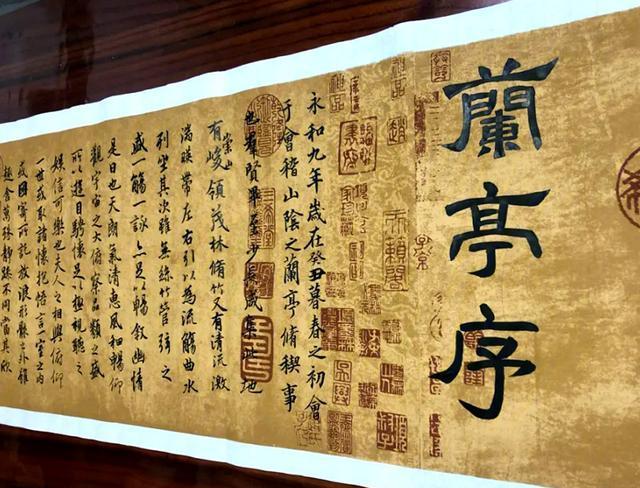 蘭亭序
永和九年歲在癸丑暮春之初會
于會稽山陰之蘭亭脩禊事
也羣賢畢至少長咸集此地
有崇山峻領茂林脩竹又有清流激
湍暎帶左右引以為流觴曲水
列坐其次雖無絲竹管弦之
盛一觴一詠亦足以暢敘幽情
是日也天朗氣清惠風和暢仰
觀宇宙之大俯察品類之盛
所以遊目騁懷足以極視聽之
娛信可樂也夫人之相與俯仰
一世或取諸懷抱悟言一室之內
或因寄所託放浪形骸之外雖
趣舍萬殊靜躁不同當其欣